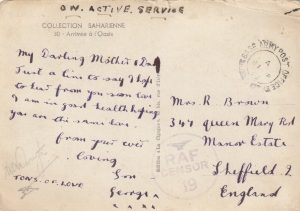 ON. ACTIVE. SERVICE
COLLECTION SAHARIENNE
30 - Arrivée à l'Oasis
My Darling Mother & Dad
Just a line to say I hope
to hear from you soon
I am in good health hoping
you are the same
from your ever
loving
Son
George
x x x x
TONS. OF. LOVE
ARMY POST OFFICE
Mrs. R. Brown
347 Queen Mary Rd
Manor Estate
Sheffield. 2
England
RAF
CENSOR
19